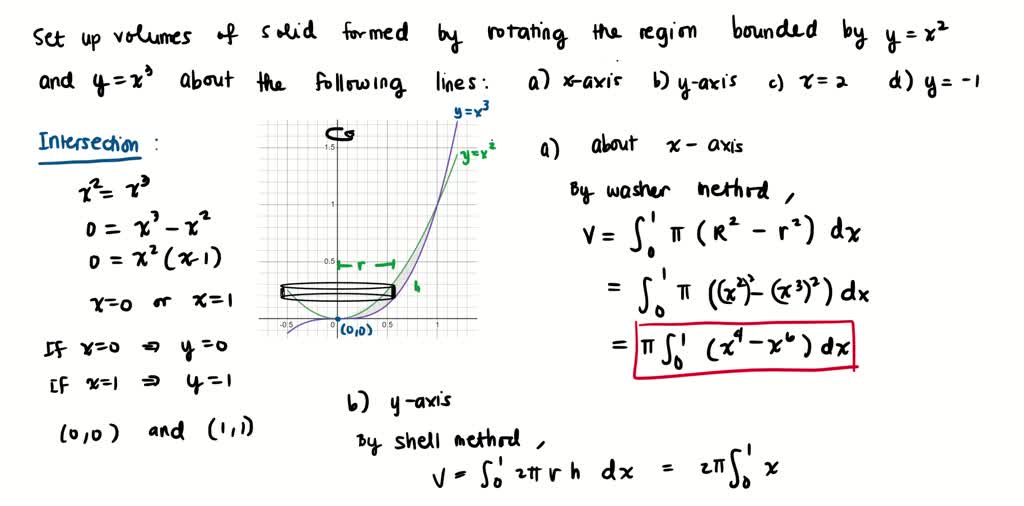 Set up volumes of solid formed by rotating the region bounded by y = x²
and y = x³ about the following lines: a) x-axis b) y-axis c) x = 2 d) y = -1
Intersection :
x² = x³
0 = x³ - x²
0 = x² (x-1)
x=0 or x=1
If x=0 ⇒ y=0
If x=1 ⇒ y=1
(0,0) and (1,1)
y=x³
y=x²
1.5
1
0.5
r
h
-0.5
0
0.5
1
(0,0)
a) about x-axis
By washer method,
V = ∫₀¹ π (R² - r²) dx
= ∫₀¹ π ((x²)² - (x³)²) dx
= π ∫₀¹ (x⁴ - x⁶) dx
b) y-axis
By shell method,
V = ∫₀¹ 2π r h dx = 2π ∫₀¹ x